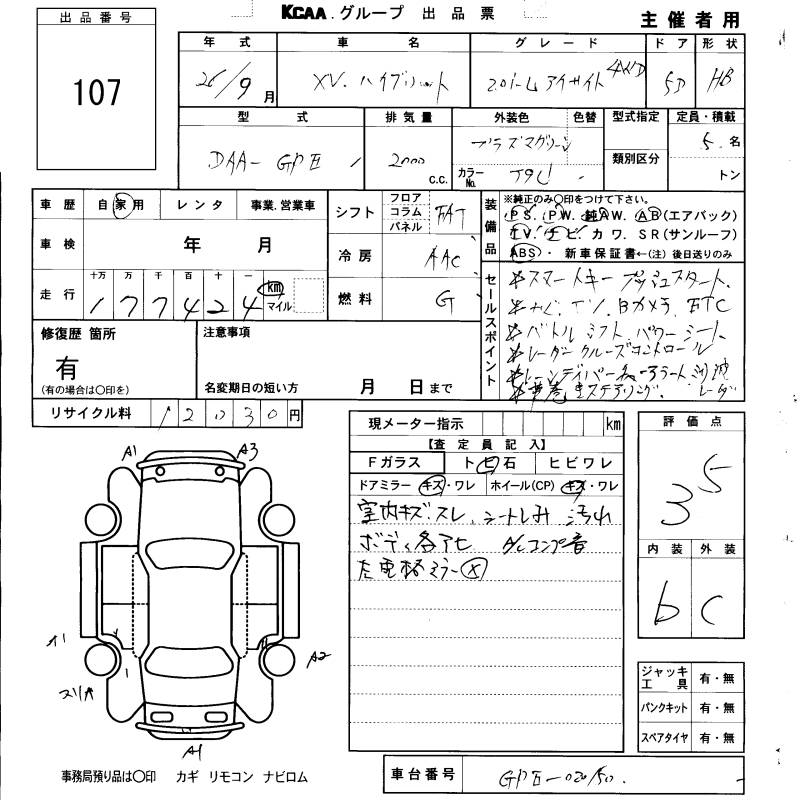 KCAA.グループ 出品票
主催者用
出品番号
107
年式 車名 グレード ドア 形状
26/9月 XV.ハイブリット 2.0i-L アイサイト 4WD 5D HB
型式 排気量 外装色 色替 型式指定 定員・積載
DAA-GPE 2000 c.c. プラズマグリーン 5名
類別区分 トン
カラーNo. J9U -
車歴 自家用 レンタ 事業.営業車
シフト フロア コラム パネル FAT
装備品 ※純正のみ〇印をつけて下さい。
PS. PW. 純AW. AB(エアバック)
TV. ナビ. カワ. SR(サンルーフ)
ABS. 新車保証書←(注)後日送りのみ
車検 年 月
冷房 AAC
走行 十万 万 千 百 十 一
177424 km マイル
燃料 G
セールスポイント
*スマートキー プッシュスタート
*ナビ. TV. Bカメラ. ETC
*パドルシフト. パワーシート
*レーダークルーズコントロール
*革巻きステアリング.
修復歴 箇所
有
(有の場合は〇印を)
注意事項
名変期日の短い方 月 日まで
リサイクル料 12030円
現メーター指示 km
【査定員記入】
Fガラス ト ビ 石 ヒビワレ
ドアミラー キズ・ワレ ホイール(CP) キズ・ワレ
室内キズ.スレ、シートしみ 汚れ
ボディ各アヒ A/Cコンプ音
左電格ミラー(×)
評価点
3.5
内装 外装
b C
A1
A3
A1
A2
スリ傷
A1
ジャッキ 工具 有・無
パンクキット 有・無
スペアタイヤ 有・無
事務局預り品は〇印 カギ リモコン ナビロム
車台番号 GPE-020150.